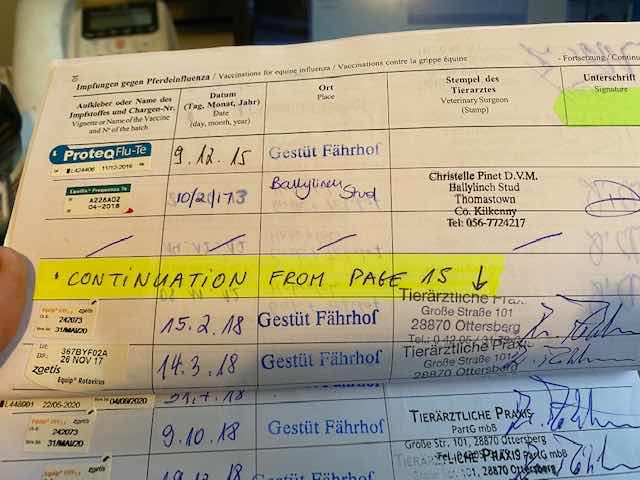 Impfungen gegen Pferdeinfluenza / Vaccinations for equine influenza / Vaccinations contre la grippe équine
- Fortsetzung / Continu
Aufkleber oder Name des
Impfstoffes und Chargen-Nr.
Vignette or Name of the Vaccine
and N° of the batch
Datum
(Tag, Monat, Jahr)
Date
(day, month, year)
Ort
Place
Stempel des
Tierarztes
Veterinary Surgeon
(Stamp)
Unterschrift
Signature
ProteqFlu-Te
L424406 11/12-2016
9.12.15
Gestüt Fährhof
Equilis Prequenza Te
A228A02
04-2018
Ballylinch
Stud
Christelle Pinet D.V.M.
Ballylinch Stud
Thomastown
Co. Kilkenny
Tel: 056-7724217
CONTINUATION FROM PAGE 15 ↓
242073
31/MAI/20
15.2.18
Gestüt Fährhof
Tierärztliche Prax.
Große Straße 101
28870 Ottersberg
367BYF02A
26 NOV 17
zoetis
Equip® Rotavirus
14.3.18
Gestüt Fährhof
Tierärztliche Praxis
Große Straße 101
28870 Ottersberg
L448901 22/05-2020
04/08/2020
242073
31/MAI/20
9.10.18
Gestüt Fährhof
TIERÄRZTLICHE PRAXIS
PartG mbB
Große Str. 101, 28870 Ottersberg
zoetis
Gestüt Fährhof
TIERÄRZTLICHE PRAXIS
PartG mbB
Große Str. 101, 28870 Ottersberg